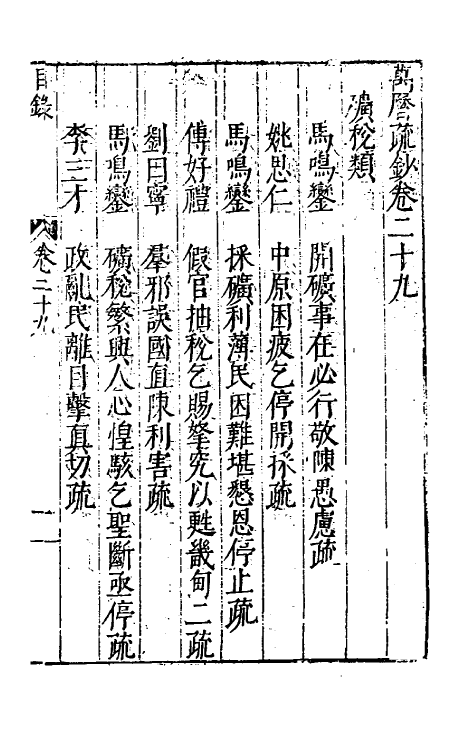 萬曆疏鈔卷二十九
礦稅類
馬鳴鑾 開礦事在必行敬陳愚慮疏
姚思仁 中原困疲乞停開採疏
馬鳴鑾 採礦利薄民困難堪懇恩停止疏
傅好禮 假官抽稅乞賜拏究以甦畿甸二疏
劉曰寧 羣邪誤國直陳利害疏
馬鳴鑾 礦稅繁興人心惶駭乞聖斷亟停疏
李三才 政亂民離目擊真切疏
目錄 卷二十九 一